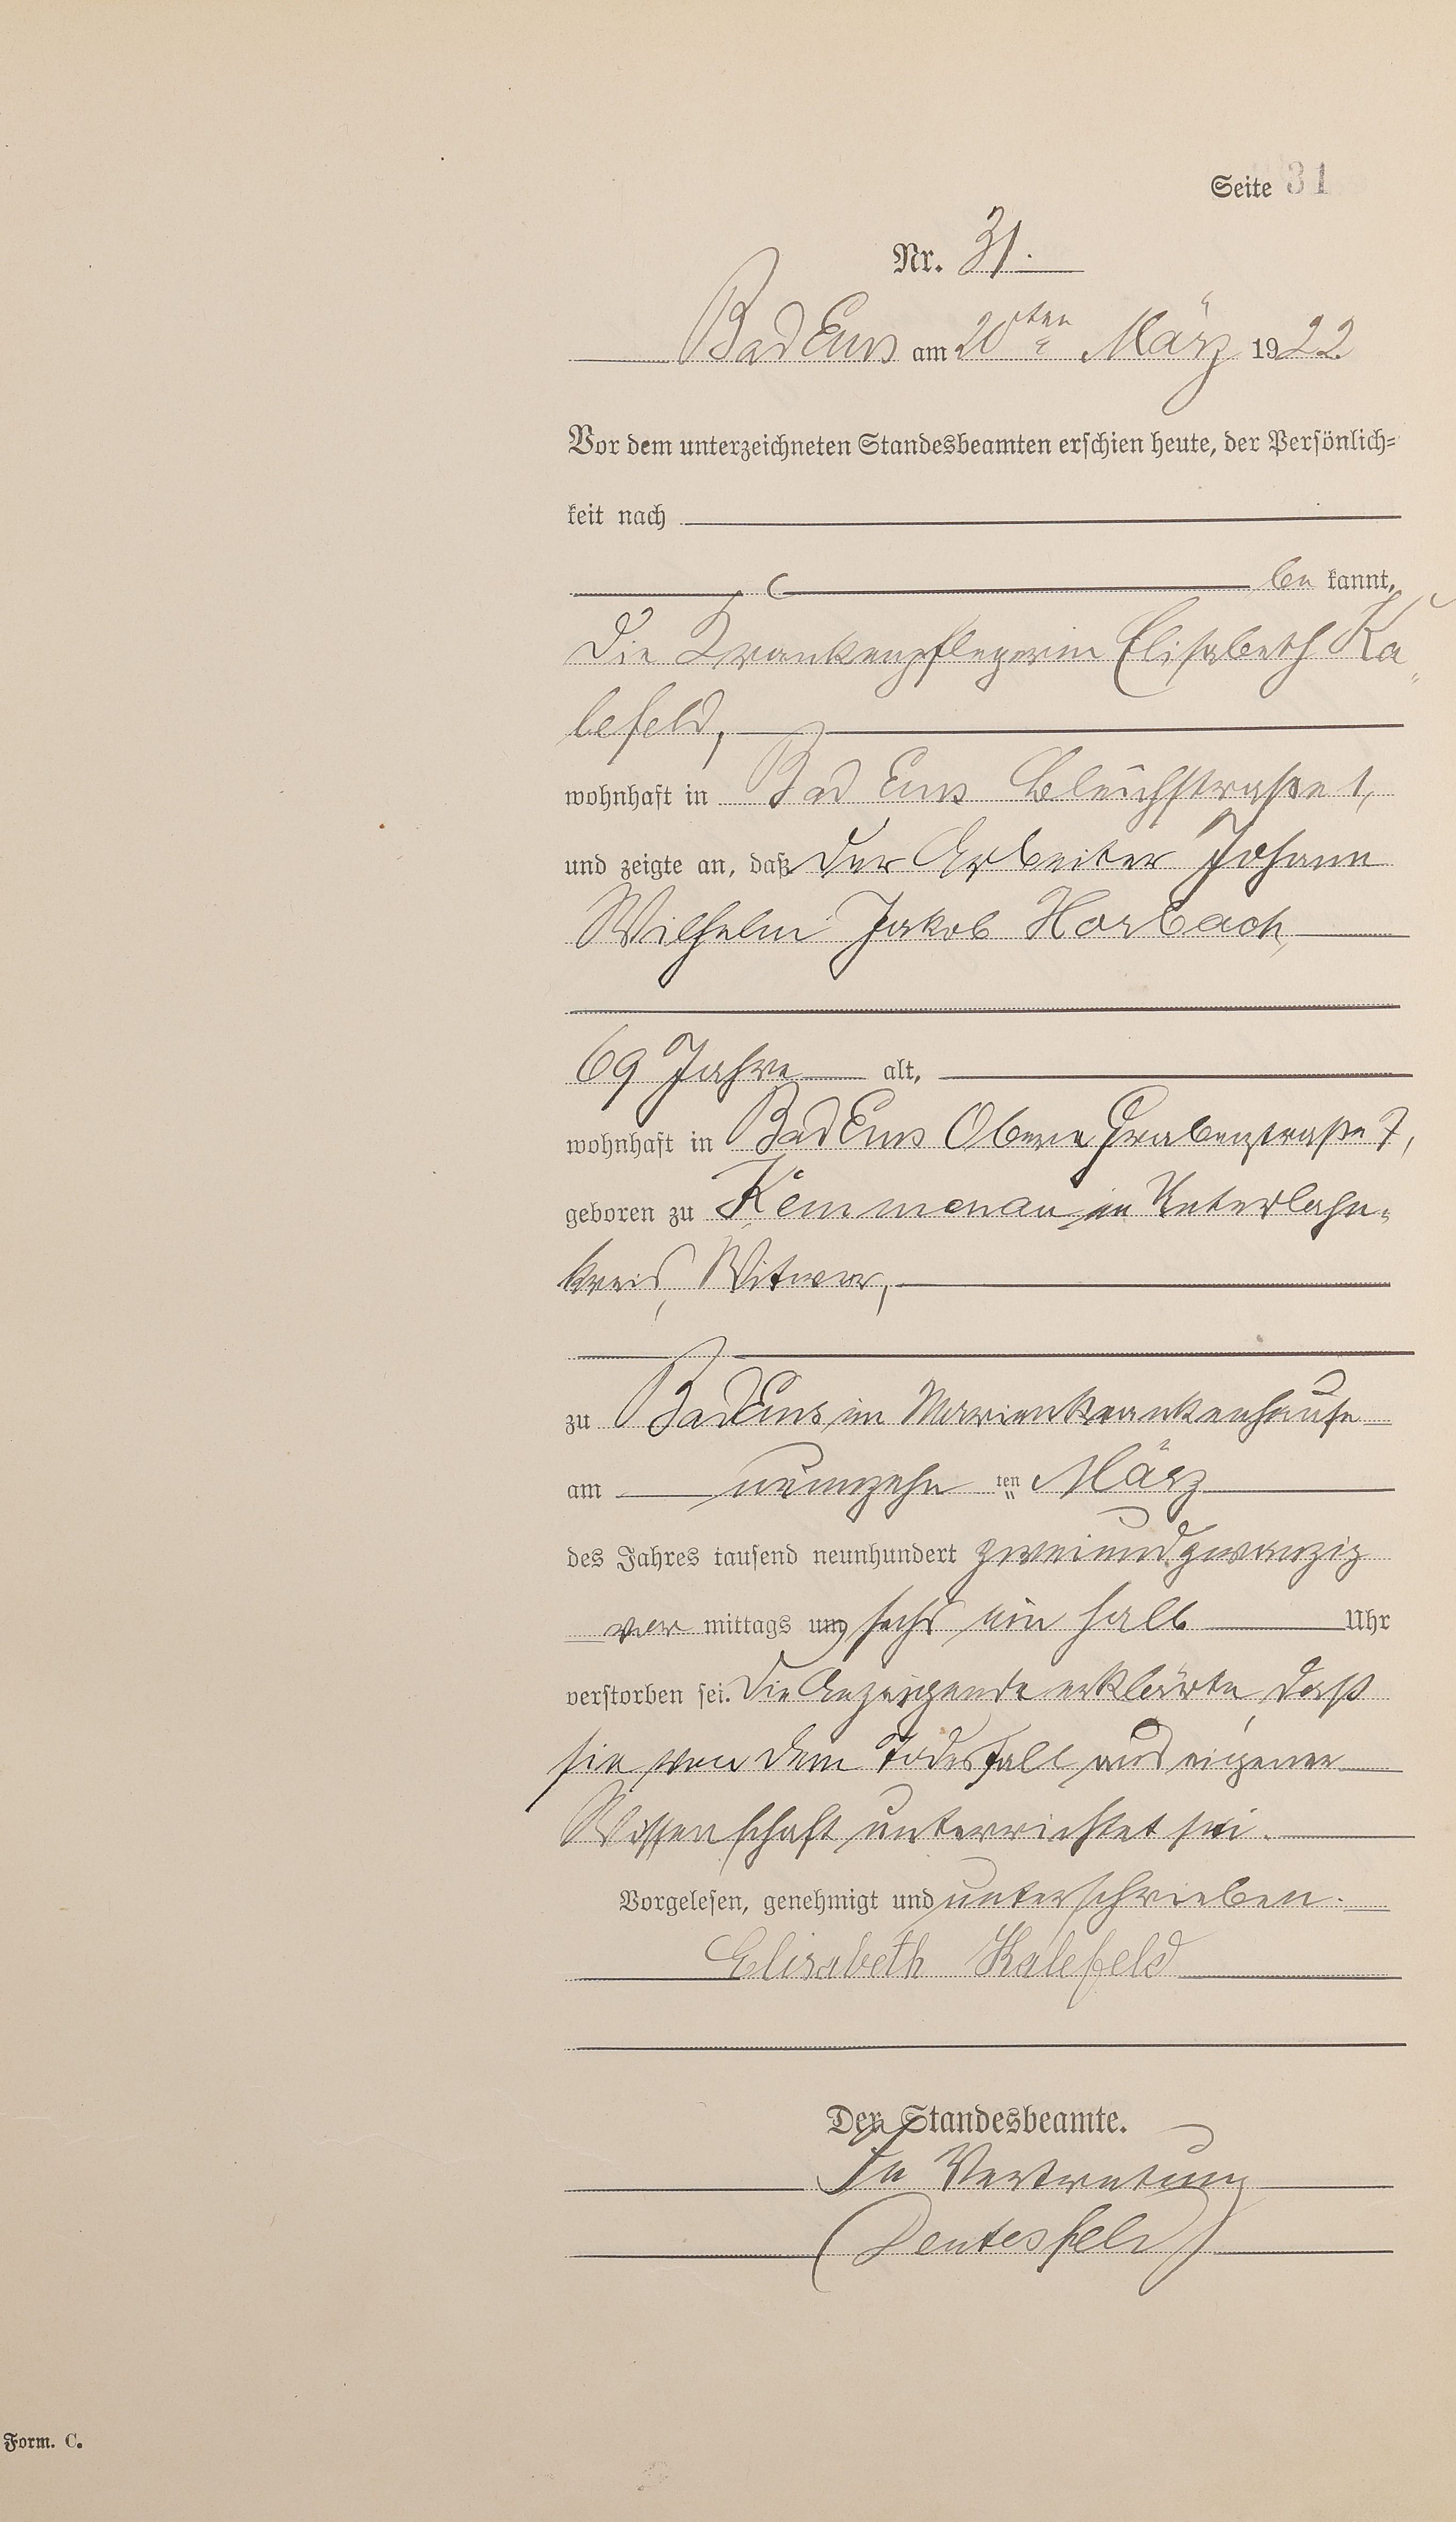 Seite 31
Nr. 31.
Bad Ems am 20ten März 1922
Vor dem unterzeichneten Standesbeamten erschien heute, der Persönlich-
keit nach
be kannt,
die Krankenpflegerin Elisabeth Ka-
lefeld,
wohnhaft in Bad Ems Bleichstraße 1,
und zeigte an, daß der Arbeiter Johann
Wilhelm Jakob Horbach,
69 Jahre alt,
wohnhaft in Bad Ems Obere Grabenstraße 7,
geboren zu Kemmenau im Unterlahn-
kreis, Witwer,
zu Bad Ems im Marienkrankenhause
am neunzehn ten März
des Jahres tausend neunhundert zweiundzwanzig
vor mittags um sechs ein halb Uhr
verstorben sei. Die Anzeigende erklärte, daß
sie von dem Todesfall aus eigener
Wissenschaft unterrichtet sei.
Vorgelesen, genehmigt und unterschrieben.
Elisabeth Kalefeld
Der Standesbeamte.
In Vertretung
Form. C.